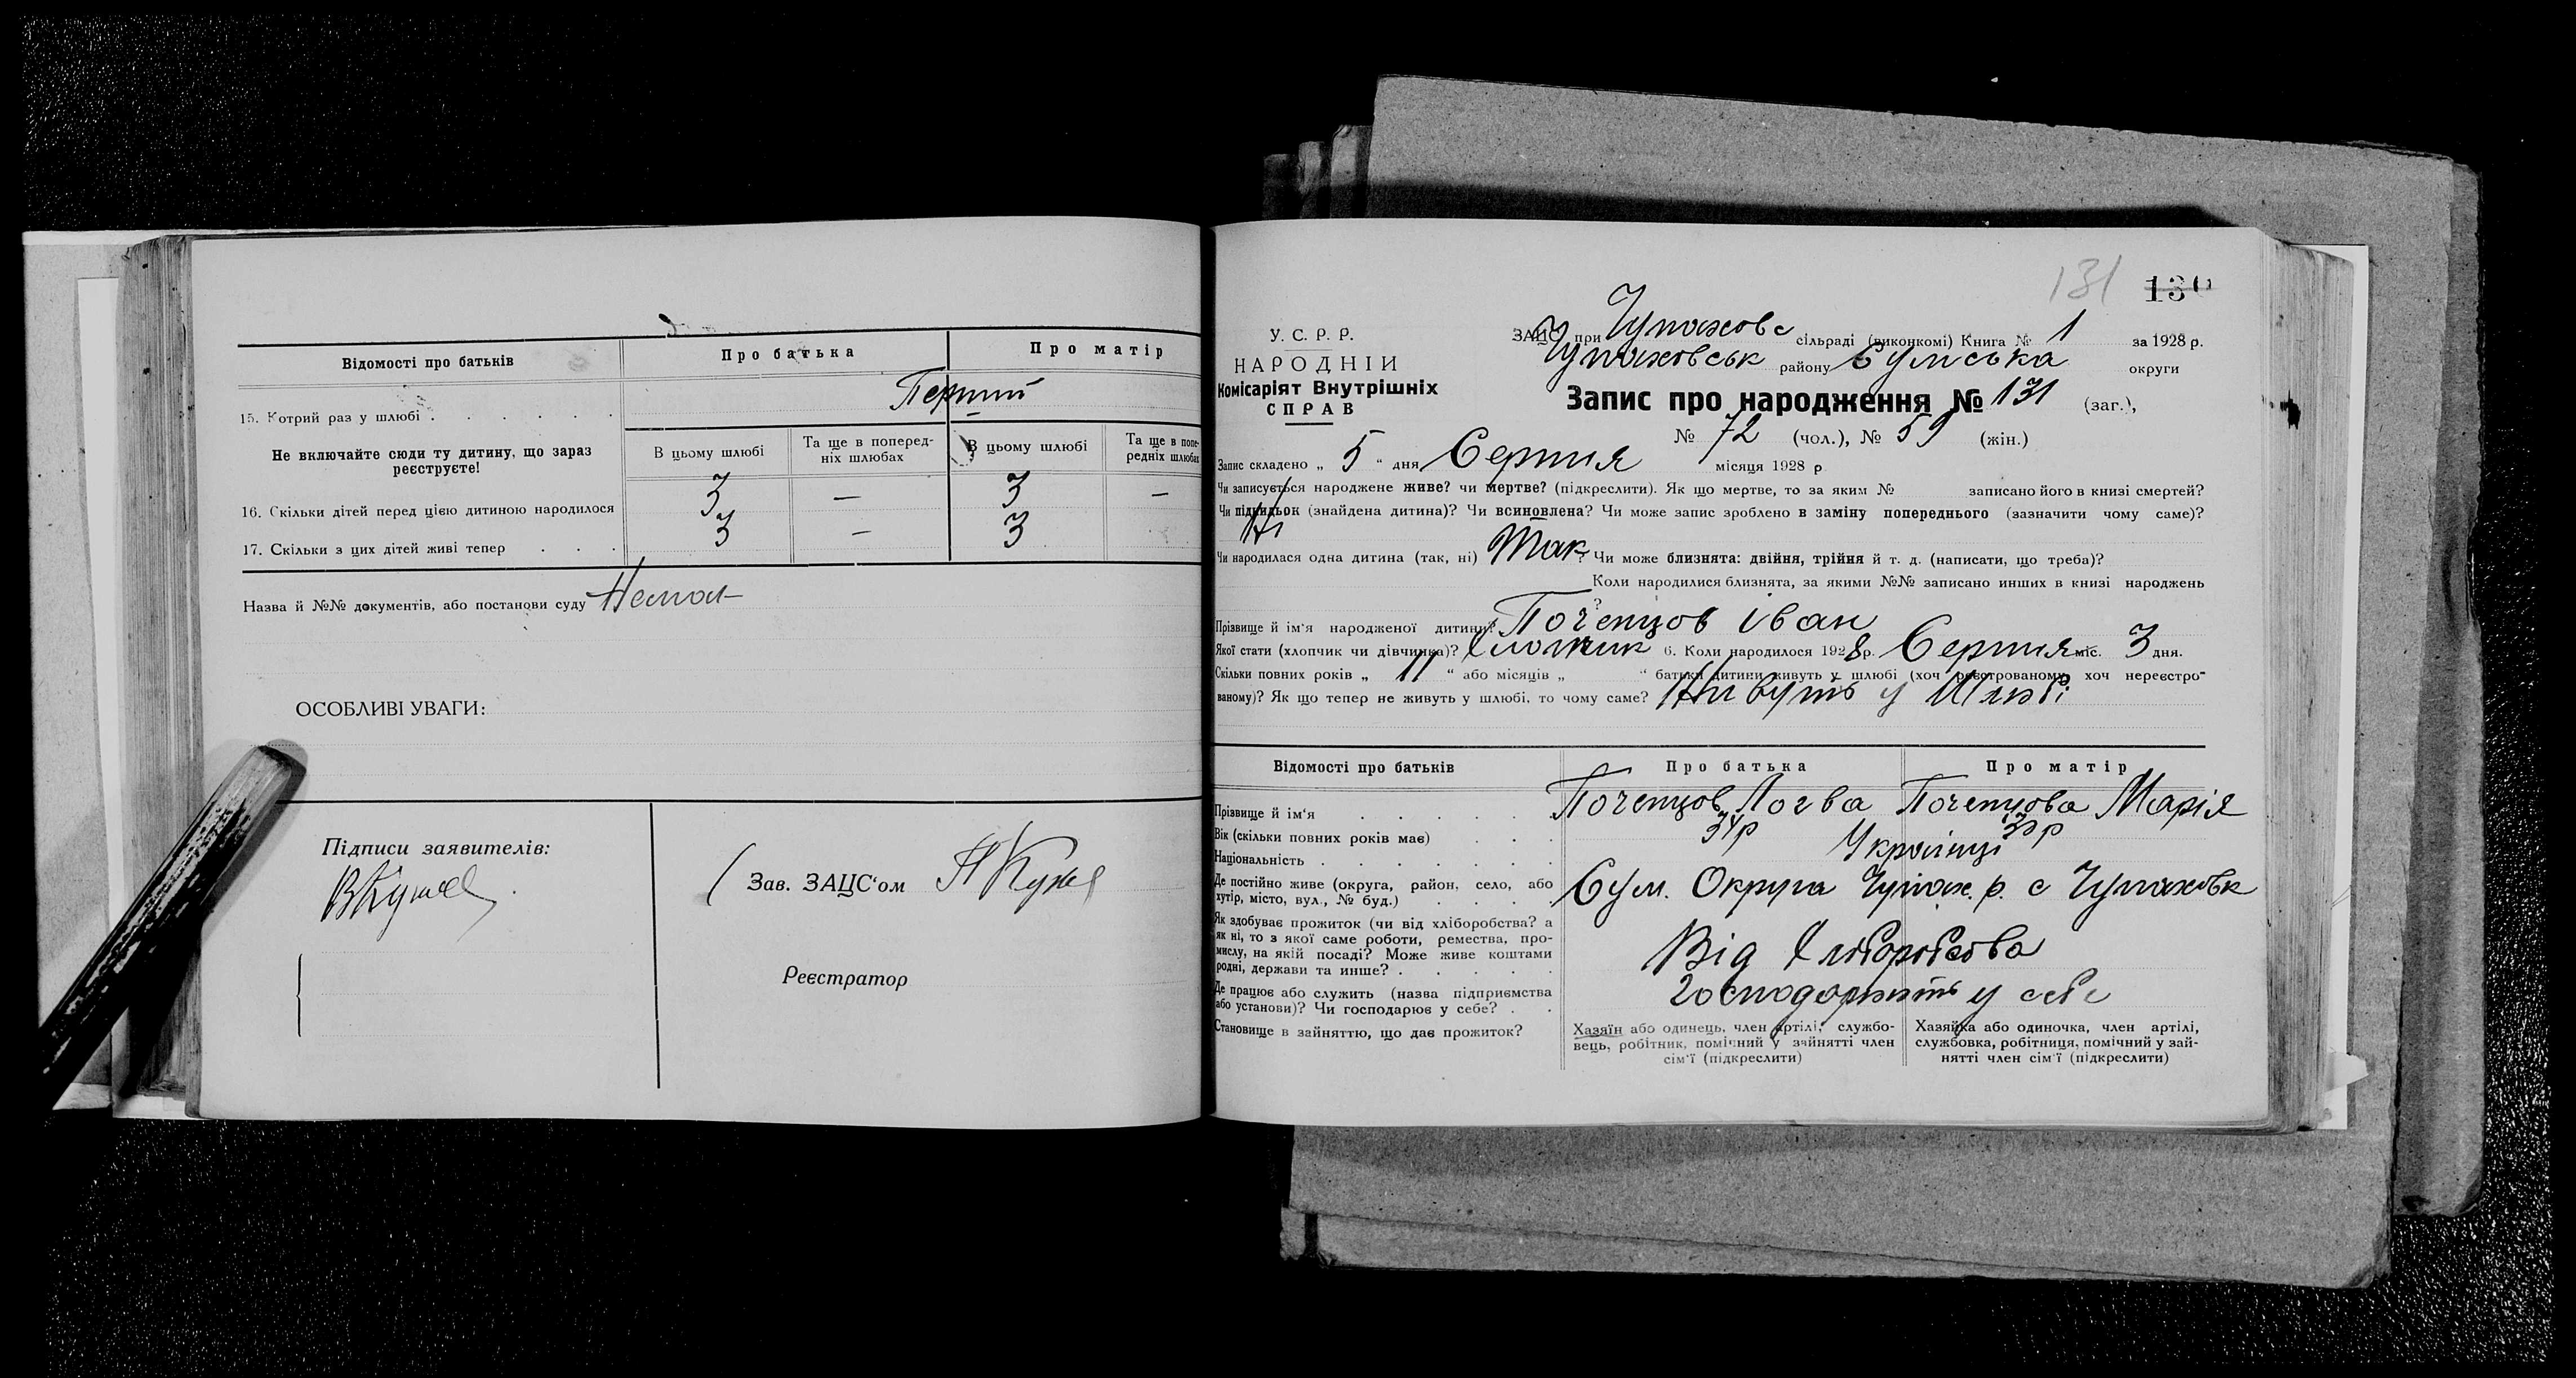 Відомості про батьків
Про батька
Про матір
15. Котрий раз у шлюбі
Перший
Не включайте сюди ту дитину, що зараз
реєструєте!
В цьому шлюбі
Та ще в поперед-
ніх шлюбах
В цьому шлюбі
Та ще в попе-
редніх шлюбах
16. Скільки дітей перед цією дитиною народилося
3 — 3 —
17. Скільки з цих дітей живі тепер
3 — 3
Назва й №№ документів, або постанови суду
ОСОБЛИВІ УВАГИ:
Підписи заявителів:
Зав. ЗАЦС'ом
Реєстратор
131 130
У. С. Р. Р.
НАРОДНІЙ
Комісаріят Внутрішніх
СПРАВ
ЗАЦС при сільраді (виконкомі) Книга № 1 за 1928 р.
району Сумська округи
Запис про народження № 131 (заг.),
№ 72 (чол.), № 59 (жін.)
Запис складено „ 5 “ дня Серпня місяця 1928 р
Чи записується народжене живе? чи мертве? (підкреслити). Як що мертве, то за яким № записано його в книзі смертей?
Чи підкидьок (знайдена дитина)? Чи всиновлена? Чи може запис зроблено в заміну попереднього (зазначити чому саме)?
Ні
Чи народилася одна дитина (так, ні) Так ? Чи може близнята: двійня, трійня й т. д. (написати, що треба)?
Коли народилися близнята, за якими №№ записано инших в книзі народжень
?
Прізвище й ім'я народженої дитини? Почепцов Іван
Якої стати (хлопчик чи дівчинка)? Хлопчик 6. Коли народилося 1928 р. Серпня міс. 3 дня.
Скільки повних років „ 11 “ або місяців „ “ батьки дитини живуть у шлюбі (хоч реєстрованому, хоч нереєстро-
ваному)? Як що тепер не живуть у шлюбі, то чому саме? Живуть у Шлюбі
Відомості про батьків
Про батька
Про матір
Прізвище й ім'я
Почепцов Логва Почепцова Марія
Вік (скільки повних років має)
34р 30р
Національність
Українці
Де постійно живе (округа, район, село, або
хутір, місто, вул., № буд.)
Сум. Округа
Як здобуває прожиток (чи від хліборобства? а
як ні, то з якої саме роботи, ремества, про-
мислу, на якій посаді? Може живе коштами
родні, держави та инше?
Від Хліборобства
Де працює або служить (назва підприємства
або установи)? Чи господарює у себе?
у себе
Становище в зайняттю, що дає прожиток?
Хазяїн або одинець, член артілі, службо-
вець, робітник, помічний у зайнятті член
сім'ї (підкреслити)
Хазяйка або одиночка, член артілі,
службовка, робітниця, помічний у зай-
нятті член сім'ї (підкреслити)